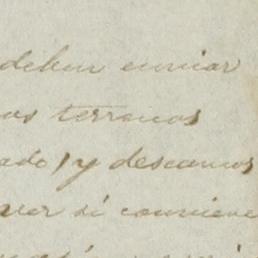 deben enviar
os terrenos
ado, y deseamos
ver si conviene